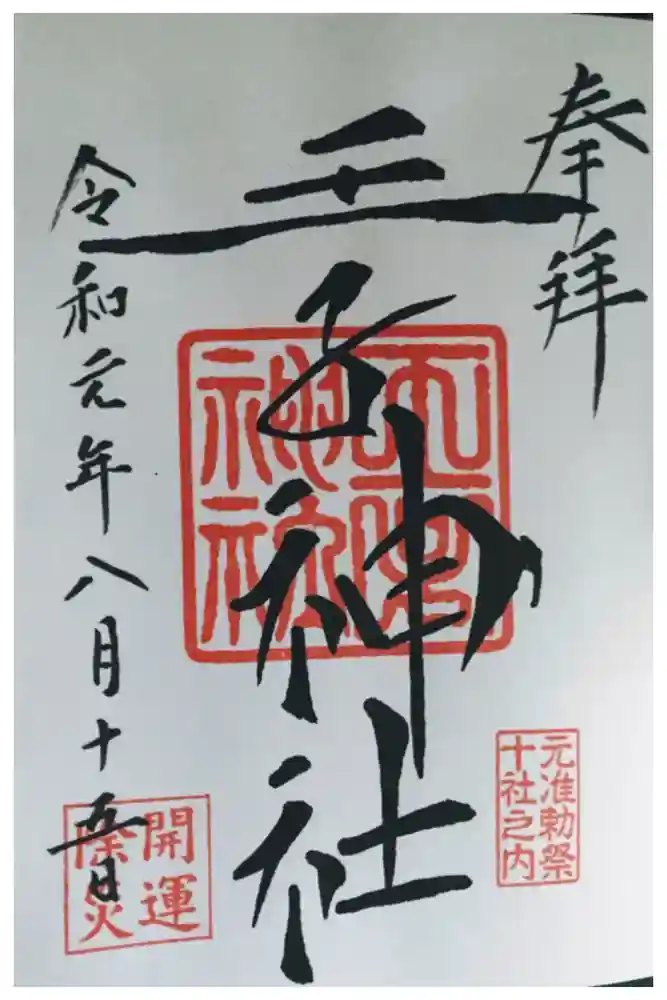 奉拝
王子神社
令和元年八月十五日
神社
元准勅祭
十社之内
開運
除災